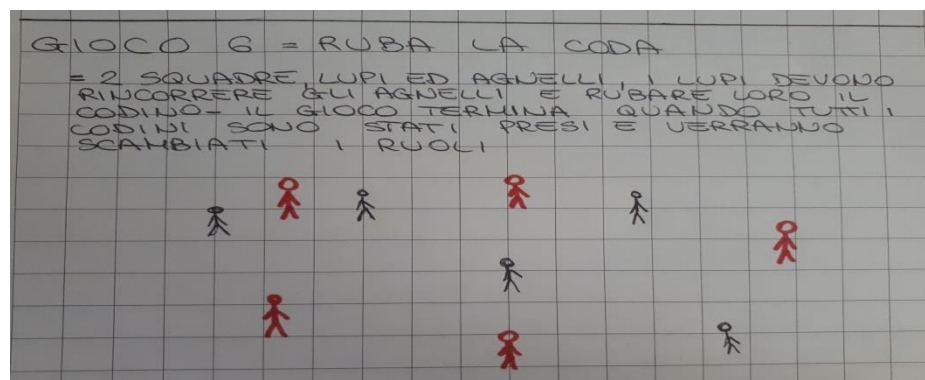 GIOCO 6 = RUBA LA CODA
= 2 SQUADRE, LUPI ED AGNELLI, I LUPI DEVONO
RINCORRERE GLI AGNELLI E RUBARE LORO IL
CODINO- IL GIOCO TERMINA QUANDO TUTTI I
CODINI SONO STATI PRESI E VERRANNO
SCAMBIATI I RUOLI